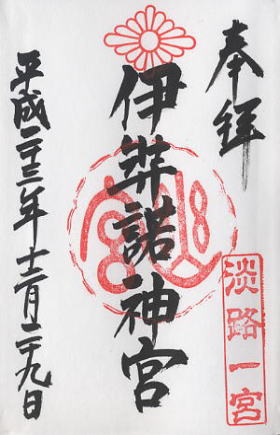 奉拝
淡路一宮
伊弉諾神宮
平成二十三年十二月二十九日